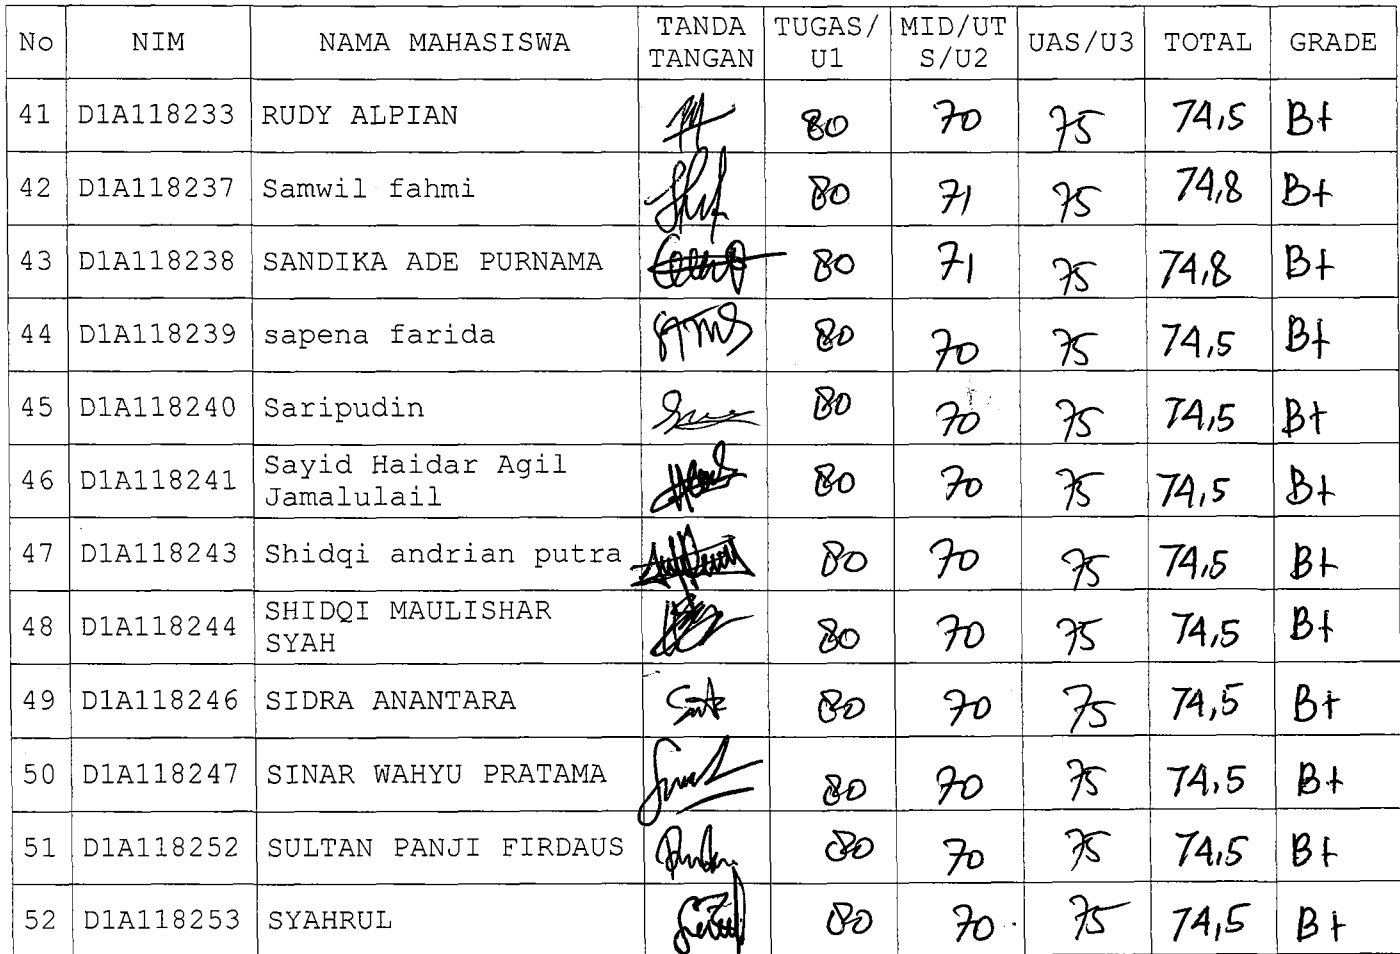 No NIM NAMA MAHASISWA TANDA TANGAN TUGAS/ U1 MID/UT S/U2 UAS/U3 TOTAL GRADE
41 D1A118233 RUDY ALPIAN 80 70 75 74,5 B+
42 D1A118237 Samwil fahmi 80 71 75 74,8 B+
43 D1A118238 SANDIKA ADE PURNAMA 80 71 75 74,8 B+
44 D1A118239 sapena farida 80 70 75 74,5 B+
45 D1A118240 Saripudin 80 70 75 74,5 B+
46 D1A118241 Sayid Haidar Agil Jamalulail 80 70 75 74,5 B+
47 D1A118243 Shidqi andrian putra 80 70 75 74,5 B+
48 D1A118244 SHIDQI MAULISHAR SYAH 80 70 75 74,5 B+
49 D1A118246 SIDRA ANANTARA 80 70 75 74,5 B+
50 D1A118247 SINAR WAHYU PRATAMA 80 70 75 74,5 B+
51 D1A118252 SULTAN PANJI FIRDAUS 80 70 75 74,5 B+
52 D1A118253 SYAHRUL 80 70 75 74,5 B+